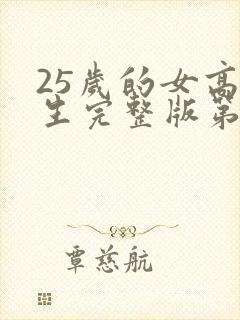 25岁的女高
生完整版第
覃慈航